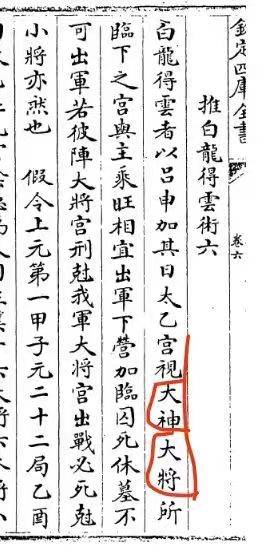 欽定四庫全書
卷六
推白龍得雲術六
白龍得雲者以呂申加其日太乙宮視大神大將所
臨下之宮與主乘旺相宜出軍下營加臨囚死休墓不
可出軍若彼陣大將宮刑尅我軍大將宮出戰必死尅
小將亦然也 假令上元第一甲子元二十二局乙酉